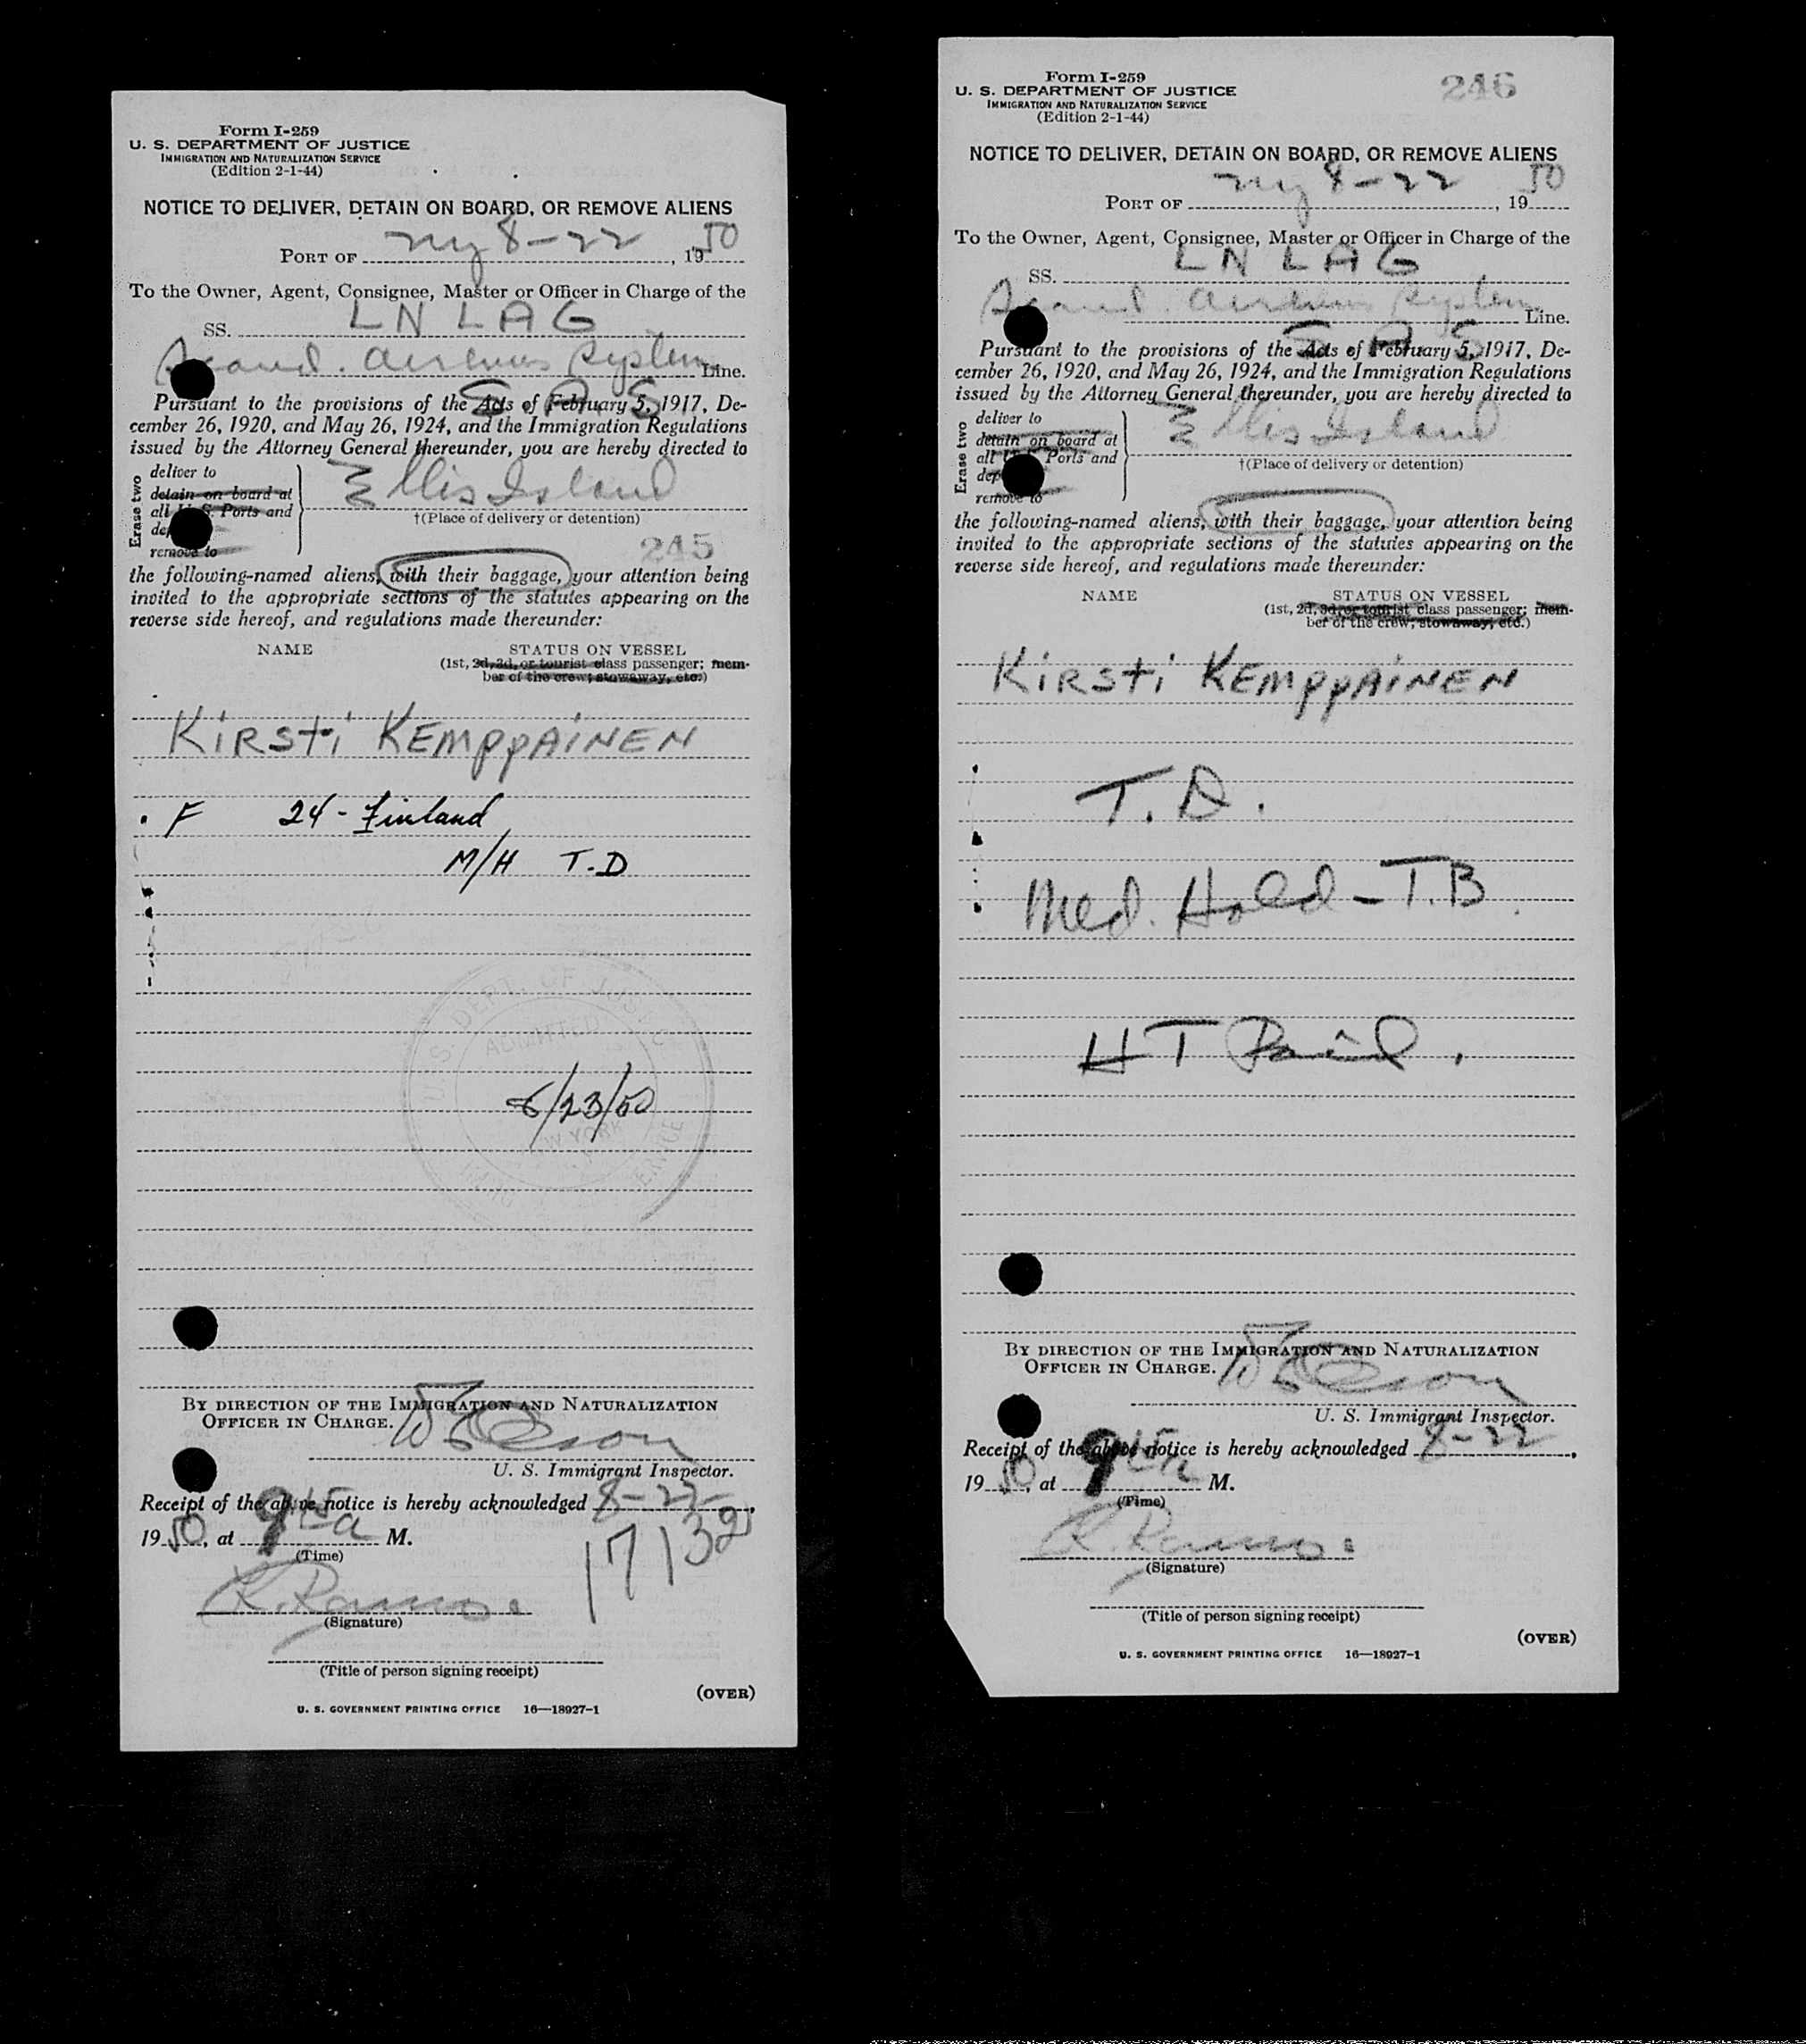 Form I-259
U. S. DEPARTMENT OF JUSTICE
IMMIGRATION AND NATURALIZATION SERVICE
(Edition 2-1-44)
NOTICE TO DELIVER, DETAIN ON BOARD, OR REMOVE ALIENS
PORT OF NY 8-22, 1950
To the Owner, Agent, Consignee, Master or Officer in Charge of the
SS. LN LAG
Scand. Airlines System Line.
S A S
Pursuant to the provisions of the Acts of February 5, 1917, De-
cember 26, 1920, and May 26, 1924, and the Immigration Regulations
issued by the Attorney General thereunder, you are hereby directed to
Erase two
deliver to
detain on board at
all U. S. Ports and
remove to
Ellis Island
†(Place of delivery or detention)
245
the following-named aliens, with their baggage, your attention being
invited to the appropriate sections of the statutes appearing on the
reverse side hereof, and regulations made thereunder:
NAME STATUS ON VESSEL
(1st, 2d, 3d, or tourist class passenger; mem-
ber of the crew; stowaway, etc.)
KiRSti KEMppAiNEN
F 24 - Finland
M/H T.D
U. S. DEPT. OF JUSTICE
ADMITTED
8/23/50
BY DIRECTION OF THE IMMIGRATION AND NATURALIZATION
OFFICER IN CHARGE.
U. S. Immigrant Inspector.
Receipt of the above notice is hereby acknowledged 8-22,
1950, at 9 15 a M.
(Time)
17132
(Signature)
(Title of person signing receipt)
(OVER)
U. S. GOVERNMENT PRINTING OFFICE 16—18927-1
Form I-259
246
U. S. DEPARTMENT OF JUSTICE
IMMIGRATION AND NATURALIZATION SERVICE
(Edition 2-1-44)
NOTICE TO DELIVER, DETAIN ON BOARD, OR REMOVE ALIENS
PORT OF NY 8-22, 1950
To the Owner, Agent, Consignee, Master or Officer in Charge of the
SS. LN LAG
Scand. Airlines System Line.
S A S
Pursuant to the provisions of the Acts of February 5, 1917, De-
cember 26, 1920, and May 26, 1924, and the Immigration Regulations
issued by the Attorney General thereunder, you are hereby directed to
Erase two
deliver to
detain on board at
all Ports and
remove to
Ellis Island
†(Place of delivery or detention)
the following-named aliens, with their baggage, your attention being
invited to the appropriate sections of the statutes appearing on the
reverse side hereof, and regulations made thereunder:
NAME STATUS ON VESSEL
(1st, 2d, 3d, or tourist class passenger; mem-
ber of the crew; stowaway, etc.)
KiRSti KEMppAiNEN
T.D.
Med. Hold - T.B.
HT Paid.
BY DIRECTION OF THE IMMIGRATION AND NATURALIZATION
OFFICER IN CHARGE.
U. S. Immigrant Inspector.
Receipt of the above notice is hereby acknowledged 8-22,
1950, at 9 15 a M.
(Time)
(Signature)
(Title of person signing receipt)
(OVER)
U. S. GOVERNMENT PRINTING OFFICE 16—18927-1